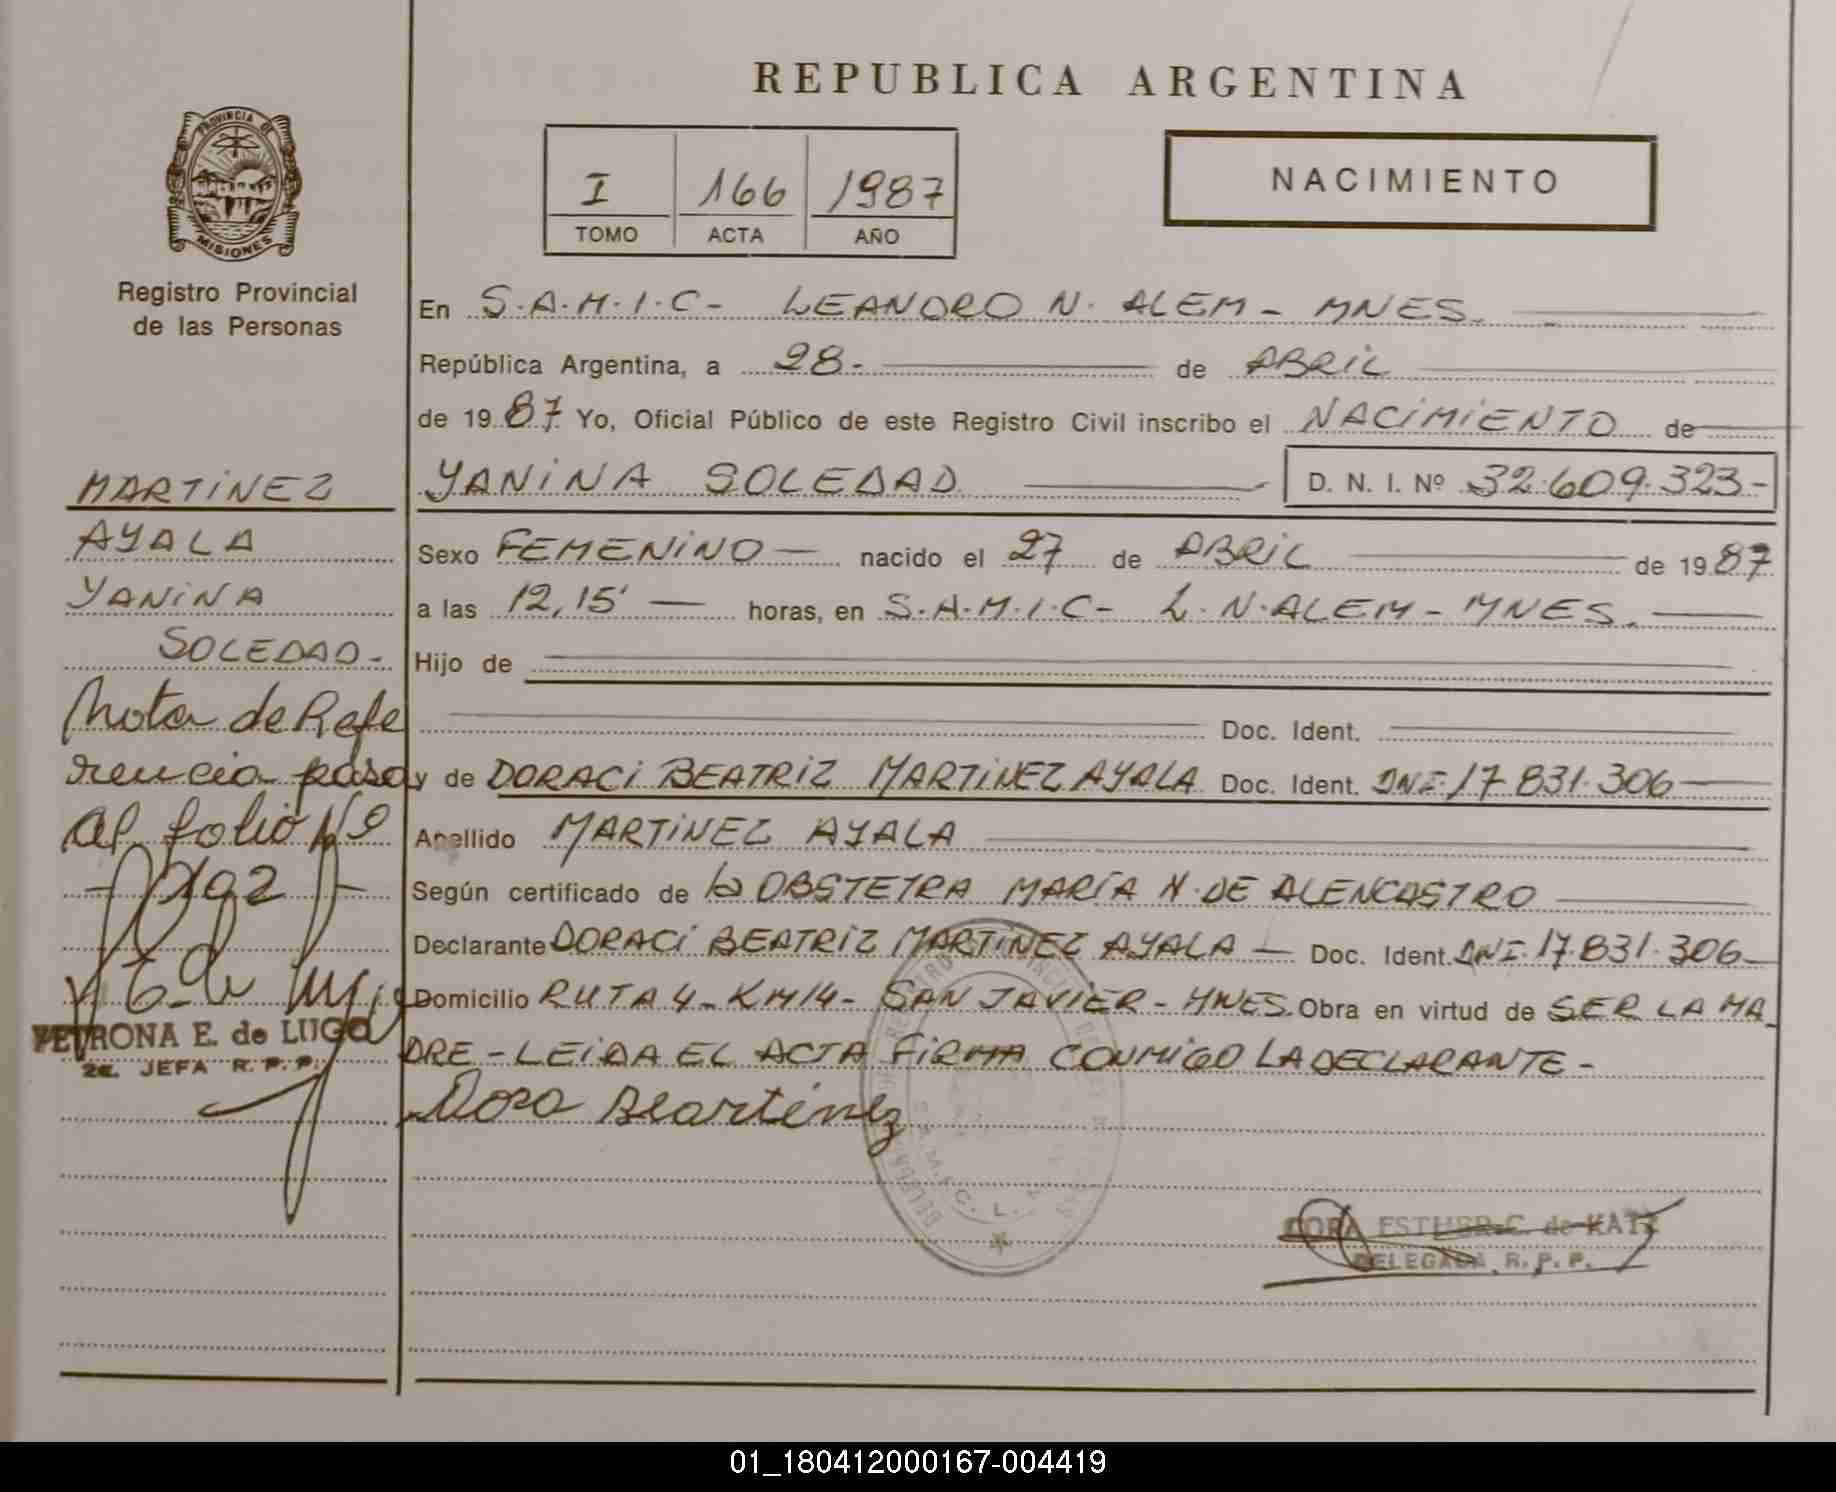 REPUBLICA ARGENTINA
PROVINCIA DE
MISIONES
Registro Provincial
de las Personas
I 166 1987
TOMO ACTA AÑO
NACIMIENTO
En S.A.M.I.C- LEANDRO N. ALEM - MNES.
República Argentina, a 28- de ABRIL
de 1987 Yo, Oficial Público de este Registro Civil inscribo el NACIMIENTO de
YANINA SOLEDAD D. N. I. Nº 32.609.323-
Sexo FEMENINO - nacido el 27 de ABRIL de 1987
a las 12,15' - horas, en S.A.M.I.C- L.N.ALEM - MNES.
Hijo de
Doc. Ident.
y de DORACI BEATRIZ MARTINEZ AYALA Doc. Ident. DNI-17.831.306
Apellido MARTINEZ AYALA
Según certificado de la OBSTETRA MARÍA N. DE ALENCASTRO
Declarante DORACI BEATRIZ MARTINEZ AYALA - Doc. Ident. DNI.17.831.306-
Domicilio RUTA 4- KM14- SAN JAVIER - MNES. Obra en virtud de SER LA MA-
DRE - LEIDA EL ACTA FIRMA CONMIGO LA DECLARANTE -
Dora Martinez
MARTINEZ
AYALA
YANINA
SOLEDAD-
Nota de Refe
rencia pasa
al folio Nº
192
PETRONA E. de LUGO
2a. JEFA R. P. P.
DORA ESTHER C. de KATZ
DELEGADA R. P. P.
01_180412000167-004419